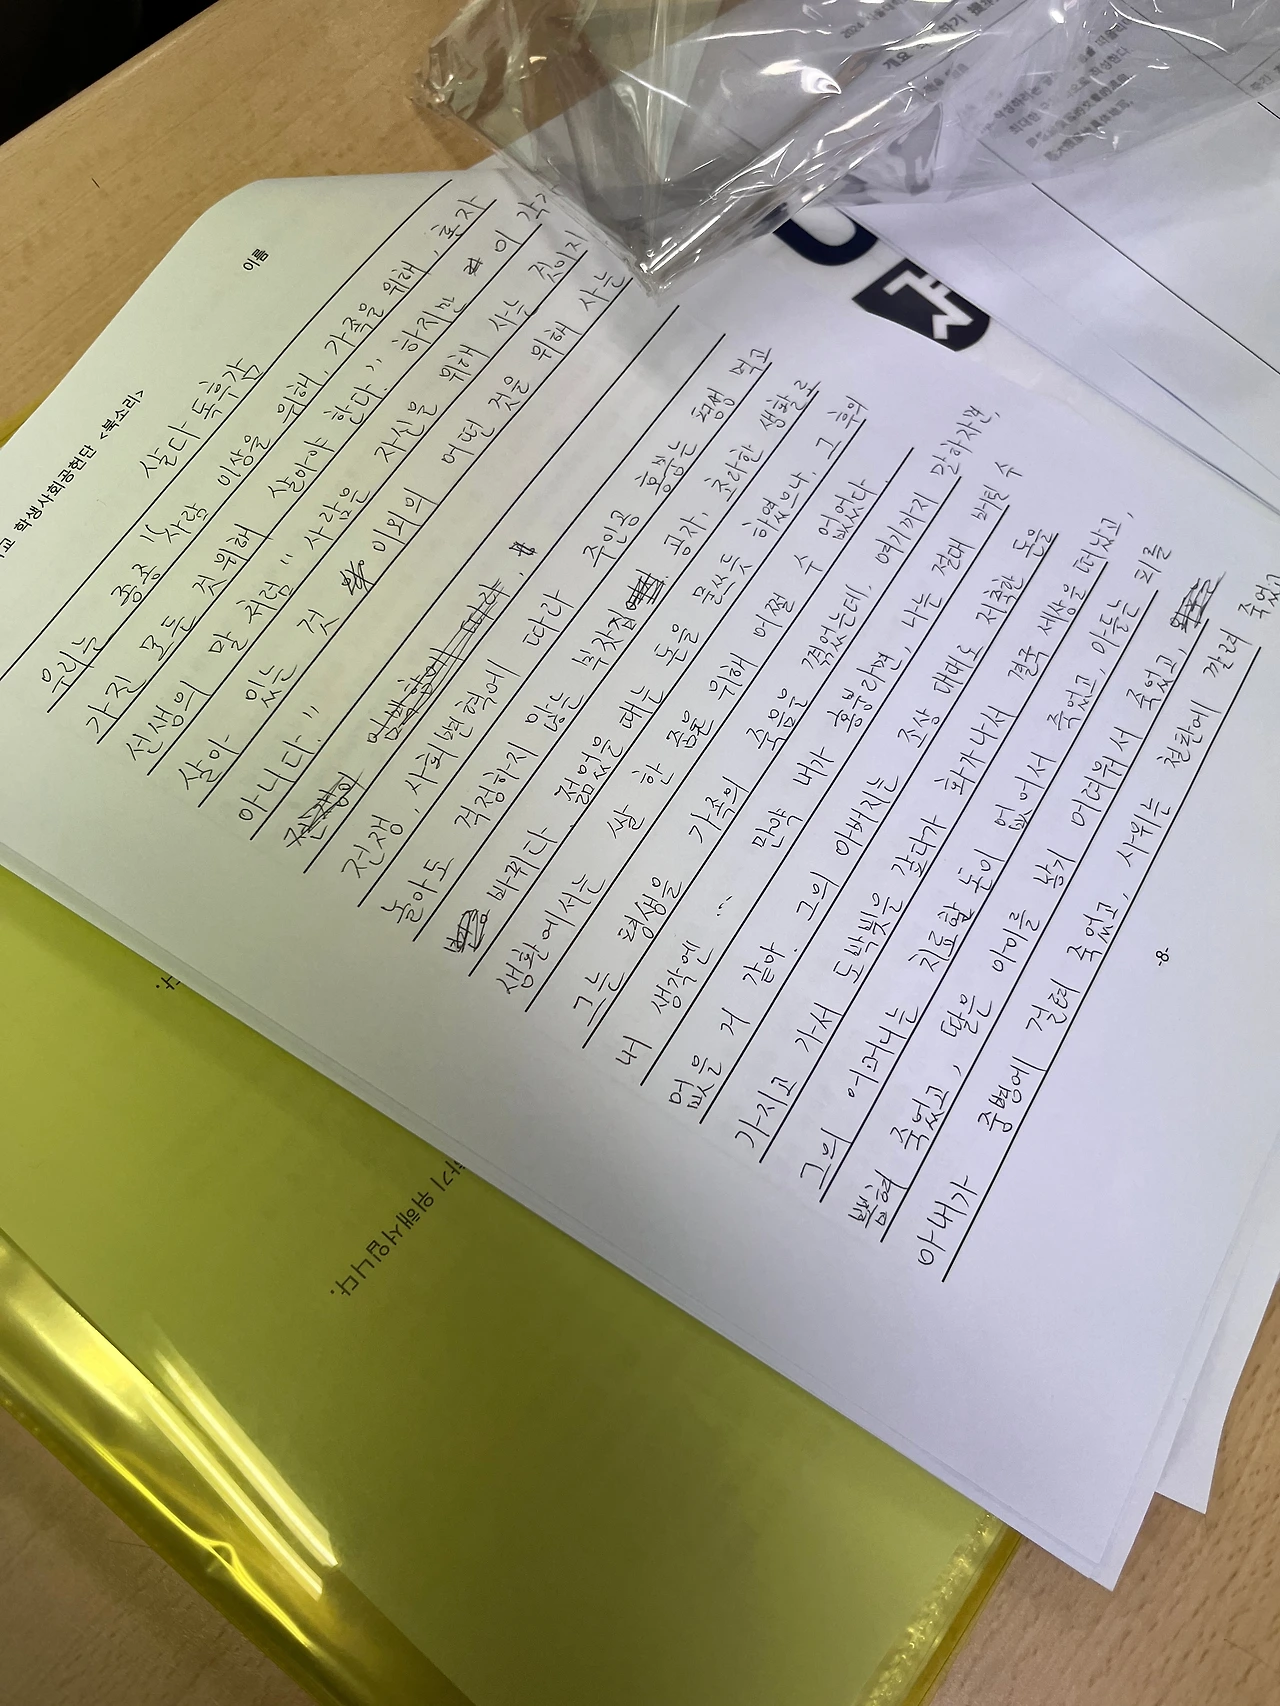 학생사회공헌단 <북소리>
이름
살다 독후감
우리는 종종 "사람 이상을 위해, 가족을 위해, 혼자
가진 모든 것 위해 살아야 한다." 하지만 이
선생의 말 처럼 "사람은 자신을 위해 사는 것이지
살아 있는 것 이외의 어떤 것을 위해 사는
아니다."
전쟁, 사회변혁에 따라 주인공 홍쯤는 평생 먹고
놀아도 걱정하지 않는 부잣집 공자, 초라한 생활로
바뀌다. 젊었을 때는 돈을 물쓰듯 하였으나, 그 후의
생활에서는 쌀 한 줌을 위해 어쩔 수 없었다.
그는 평생을 가족의 죽음을 겪었는데, 여기까지 말하자면,
내 생각엔 ... 만약 내가 홍부라면, 나는 절대 버틸 수
없을 거 같아. 그의 아버지는 조상 대대로 저축한 돈을
가지고 가서 도박빚을 갚다가 화가나서 결국 세상을 떠났고,
그의 어머니는 치료할 돈이 없어서 죽었고, 아들는 피를
뽑혀 죽었고, 딸은 아이를 낳기 어려워서 죽었고,
아내가 중병에 걸려 죽었고, 사위는 천판에 깔려 죽었고
-8-
하기 위해서입니다.
다.